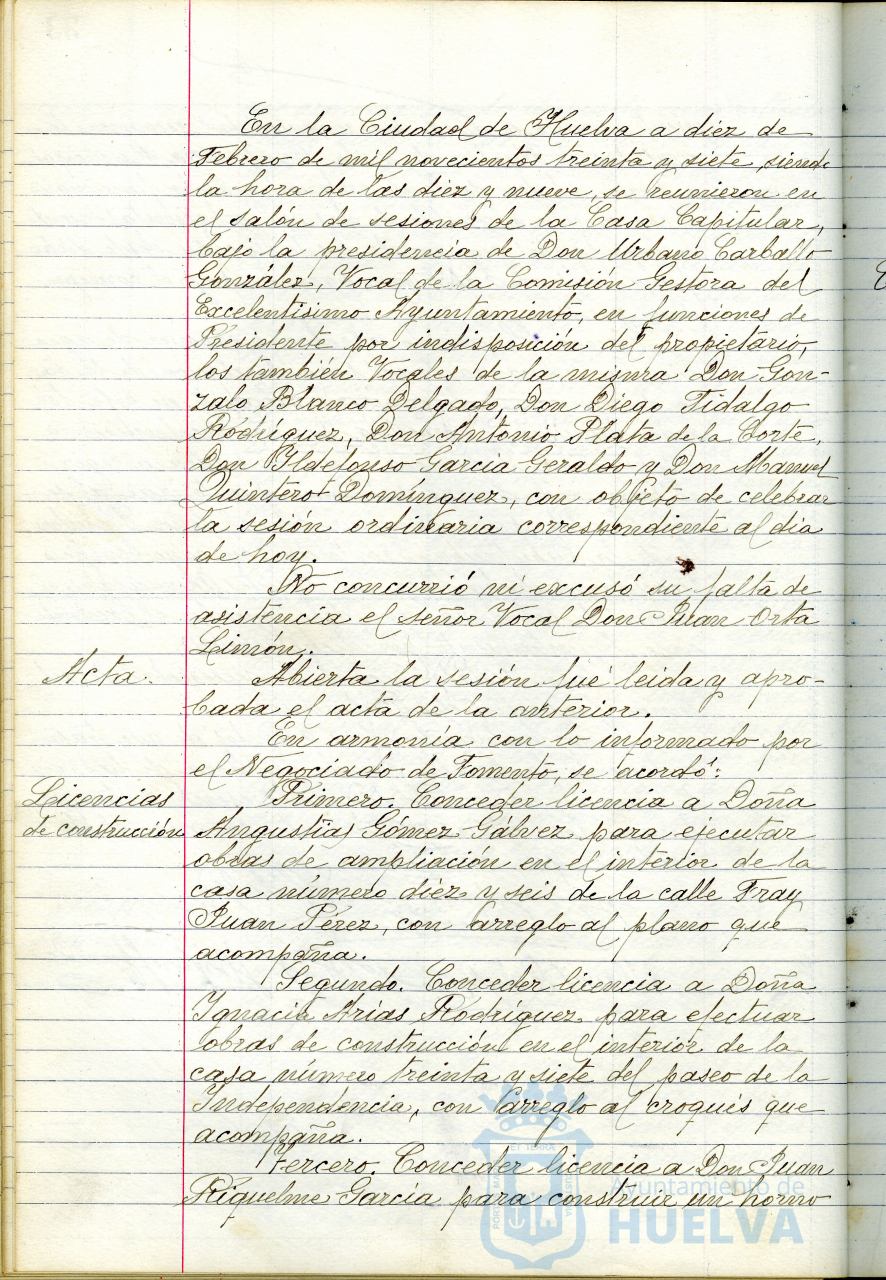 En la Ciudad de Huelva a diez de
Febrero de mil novecientos treinta y siete, siendo
la hora de las diez y nueve, se reunieron en
el salón de sesiones de la Casa Capitular,
bajo la presidencia de Don Urbano Carballo
González, Vocal de la Comisión Gestora del
Excelentisimo Ayuntamiento, en funciones de
Presidente por indisposición del propietario,
los también Vocales de la misma Don Gon-
zalo Blanco Delgado, Don Diego Fidalgo
Rodríguez, Don Antonio Plata de la Corte,
Don Ildefonso García Geraldo y Don Manuel
Quintero Domínguez, con objeto de celebrar
la sesión ordinaria correspondiente al día
de hoy.
No concurrió ni excusó su falta de
asistencia el señor Vocal Don Juan Orta
Limón.
Acta.
Abierta la sesión fué leida y apro-
bada el acta de la anterior.
En armonía con lo informado por
el Negociado de Fomento, se acordó:
Licencias
de construcción
Primero. Conceder licencia a Doña
Angustias Gómez Gálvez para ejecutar
obras de ampliación en el interior de la
casa número diez y seis de la calle Fray
Juan Pérez, con arreglo al plano que
acompaña.
Segundo. Conceder licencia a Doña
Ignacia Arias Rodríguez para efectuar
obras de construcción en el interior de la
casa número treinta y siete del paseo de la
Independencia, con arreglo al croquis que
acompaña.
Tercero. Conceder licencia a Don Juan
Riquelme García para construir un horno
Ayuntamiento de
HUELVA